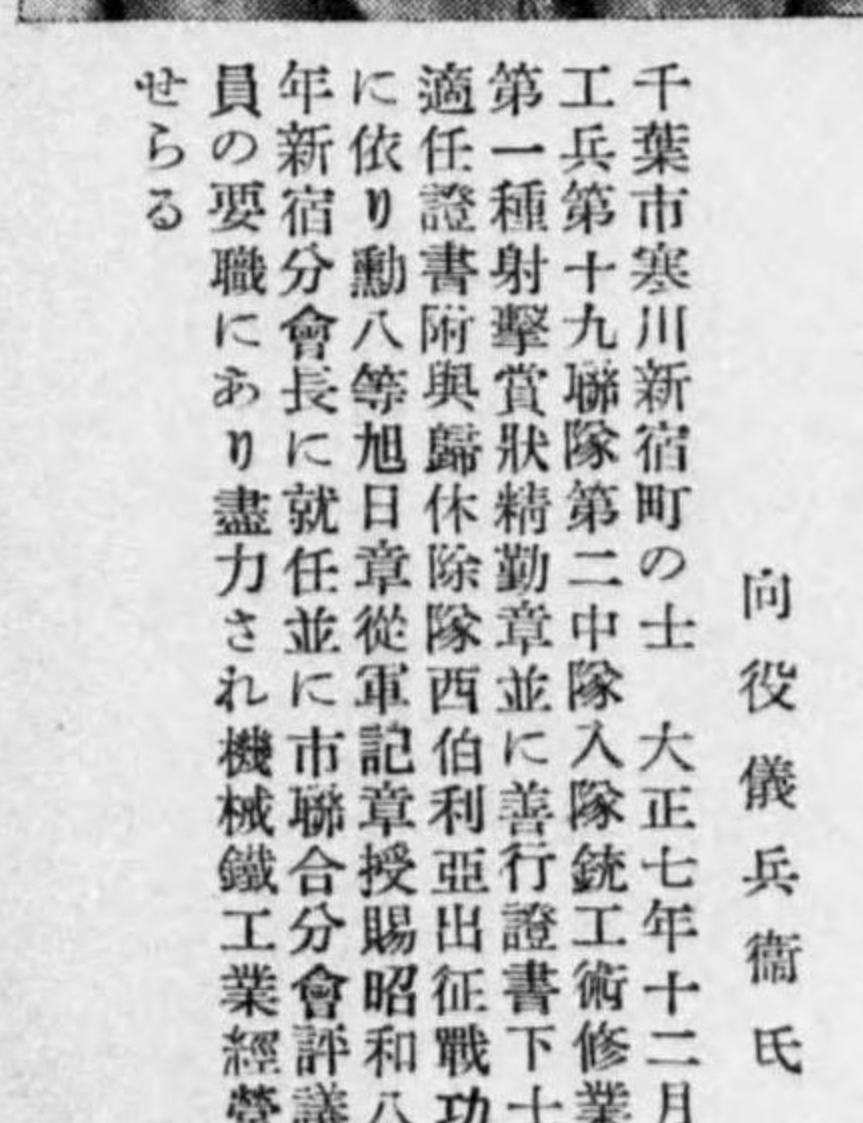 向役儀兵衞氏
千葉市寒川新宿町の士　大正七年十二月
工兵第十九聯隊第二中隊入隊銃工術修業
第一種射擊賞狀精勤章並に善行證書下士
適任證書附與歸休除隊西伯利亞出征戰功
に依り勳八等旭日章從軍記章授賜昭和八
年新宿分會長に就任並に市聯合分會評議
員の要職にあり盡力され機械鐵工業經營
せらる